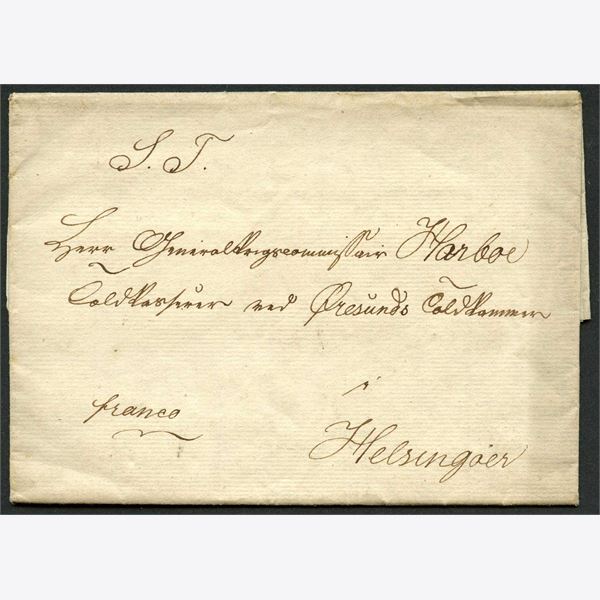 S. T.
Herr Generalkrigscommissair Harboe
Toldkasserer ved Øresunds Toldkammer
i
franco
Helsingøer